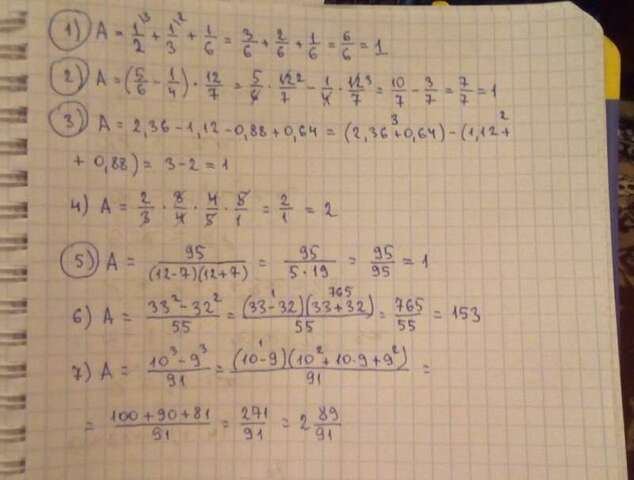 1) A = 1/2 ^3 + 1/3 ^2 + 1/6 = 3/6 + 2/6 + 1/6 = 6/6 = 1
2) A = (5/6 - 1/4) · 12/7 = 5/6 · 12/7 ^2 - 1/4 · 12/7 ^3 = 10/7 - 3/7 = 7/7 = 1
3) A = 2,36 - 1,12 - 0,88 + 0,64 = (2,36 + 0,64) ^3 - (1,12 + ^2
+ 0,88) = 3 - 2 = 1
4) A = 2/3 · 3/4 · 4/5 · 5/1 = 2/1 = 2
5) A = 95/(12-7)(12+7) = 95/5·19 = 95/95 = 1
6) A = 33²-32²/55 = (33-32) ^1 (33+32) ^765 /55 = 765/55 = 153
7) A = 10³-9³/91 = (10-9) ^1 (10²+10·9+9²)/91 =
= 100+90+81/91 = 271/91 = 2 89/91